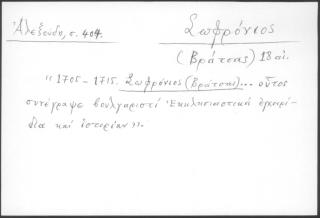 Ἀλεξούδη, σ. 404.
Σωφρόνιος
(Βράτσας) 18 αἰ.
"1705-1715. Σωφρόνιος (Βράτσας)... οὗτος
συνέγραψε βουλγαριστί Ἐκκλησιαστικά ἐγχειρί-
δια καί ἱστορίαν".